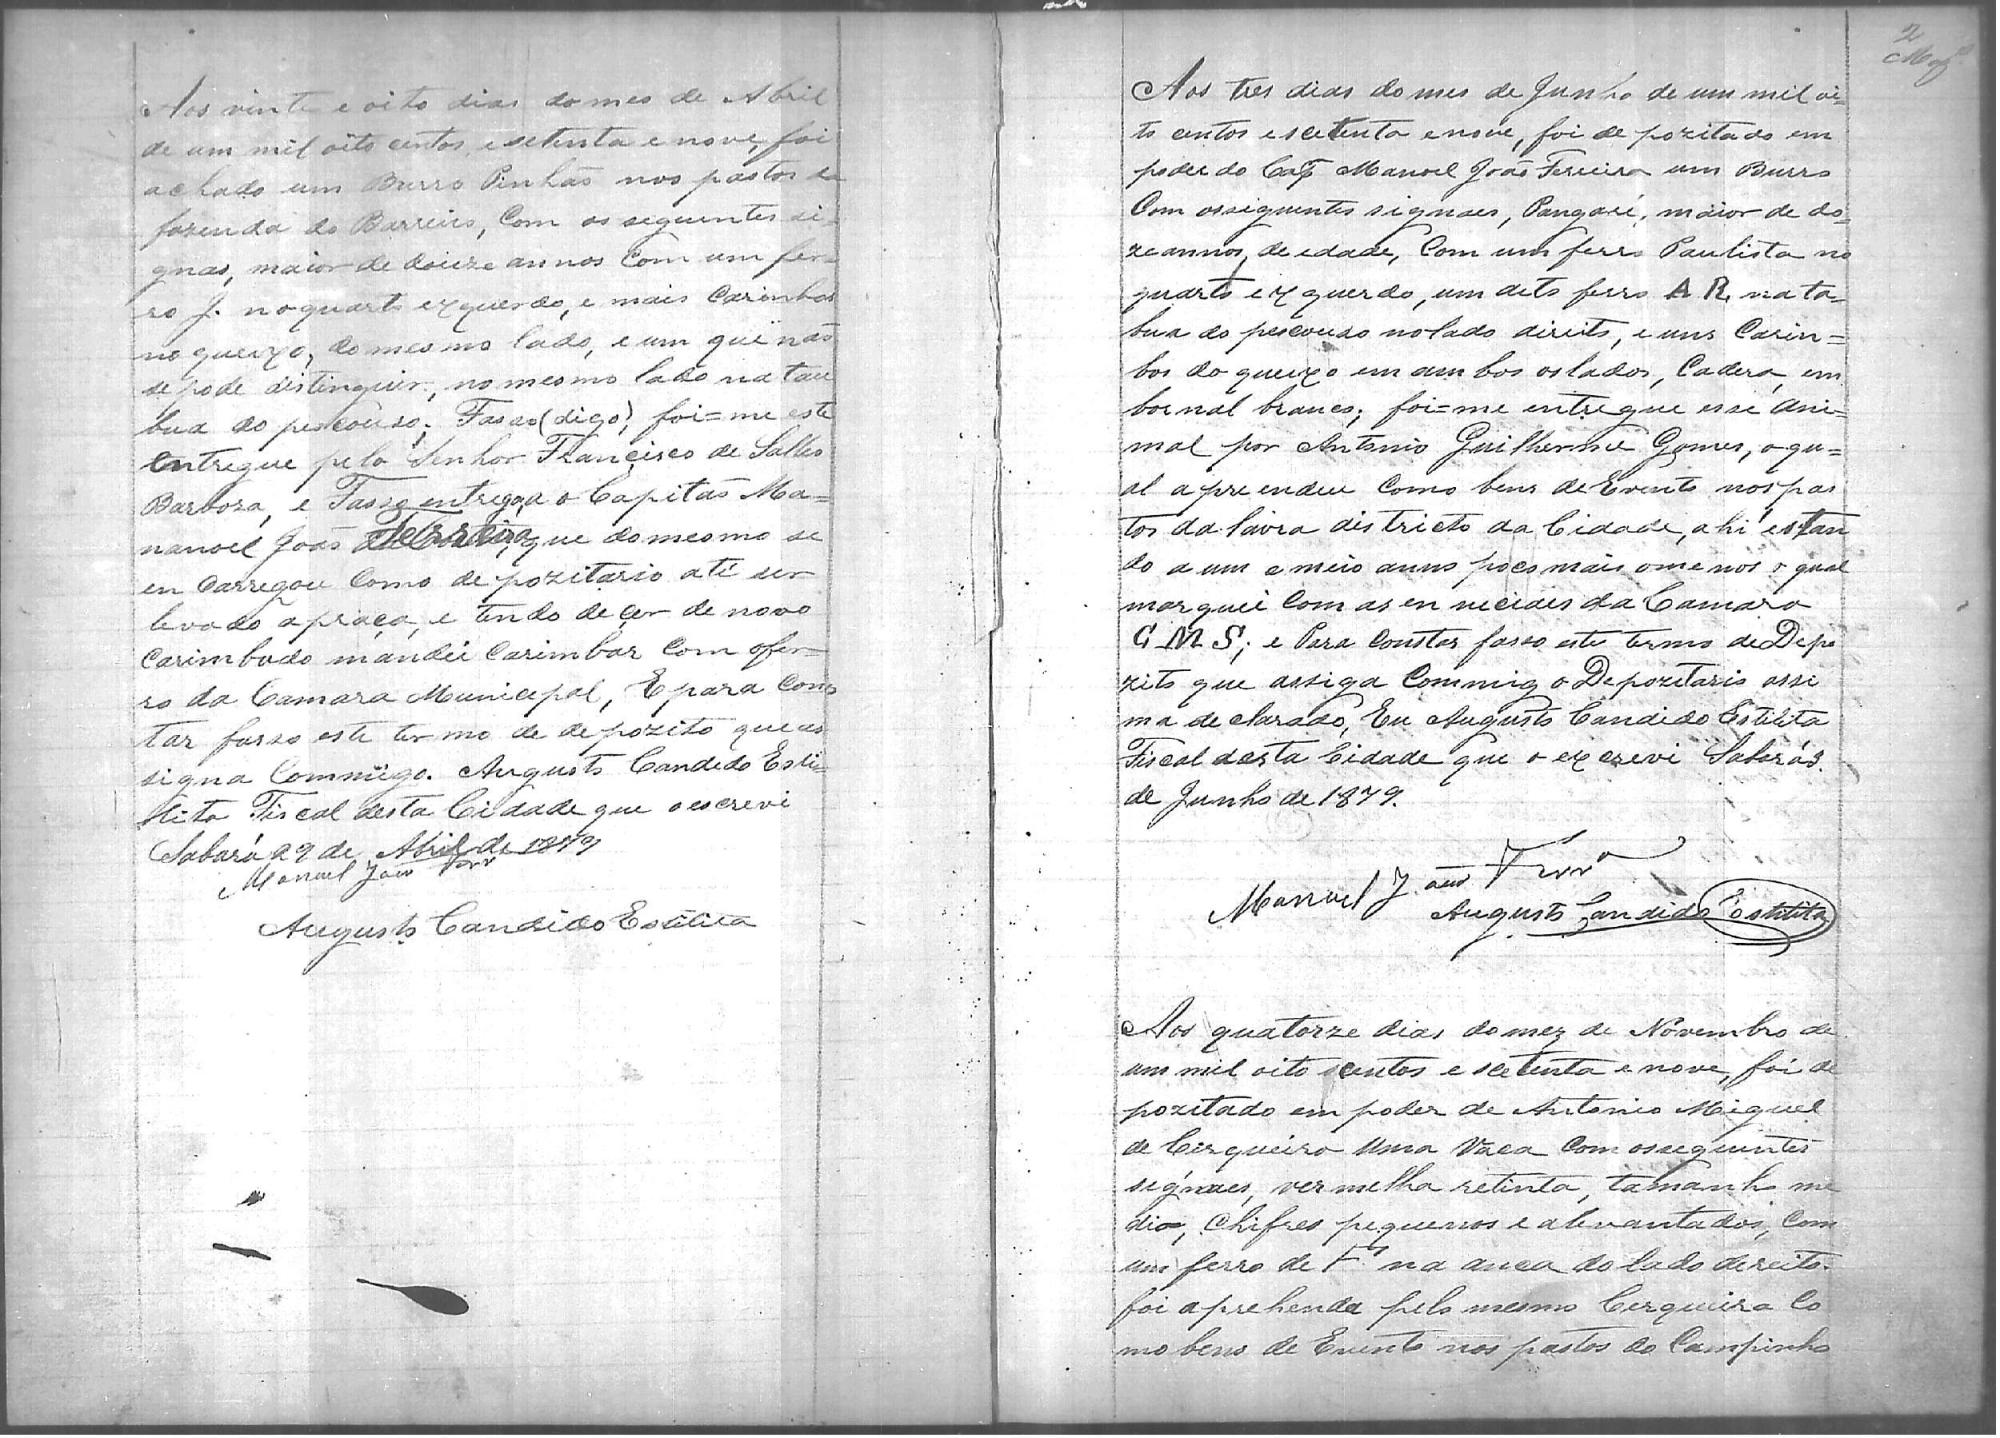 Aos vinte e oito dias do mes de Abril
de um mil oito centos e setenta e nove, foi
achado um Burro Pinhão nos pastos da
fazenda do Barreiro, Com os seguintes si-
gnas, maior de douze annos Com um fer-
ro J. no quarto ezquerdo, e mais Carimbos
no queixo, do mesmo lado, e um que não
se pode distinguir, no mesmo lado na tau
bua do pescouso; Fasao (digo) foi=me este
entregue pelo Senhor Francisco de Salles
Barboza, e Fasso entrega, a o Capitão Ma=
nanoel João Ferreira, que do mesmo se
en Carregou Como de pozitario até ser
levado a praça, e tendo de çer de novo
Carimbado mandei Carimbar Com o fer-
ro da Camara Municipal, E para Cons
tar fasso este termo de depozito que as
signa Commigo. Augusto Candido Esti=
llita Fiscal desta Cidade que o escrevi
Sabará 29 de Abril de 1879
Manoel João Ferrª
Augusto Candido Estillita
2
Aos tres dias do mes de Junho de um mil oi=
to centos e setenta e nove, foi de pozitado em
poder do Capᵐ Manoel João Fereira um Burro
Com os siguintes signaes, Pangaré, maior de do=
ze annos, de edade, Com um ferro Paulista no
quarto ezquerdo, um dito ferro A R, na ta-
bua do pescouso no lado direito, e uns Carin=
bos do queixo em ambos os lados, Cadera, em
bornal branco; foi=me entregue esse ani=
mal por Antonio Guilherme Gomes, o qu=
al aprendeu Como bens de Evento nos pas
tos da lavra districto da Cidade, ahi estan
do a um e meio annos poco mais ou menos o qual
marquei Com as en neciaes da Camara
C M S; e Para Constar fasso este termo de Depo
zito que assiga Commigo o Depozitario assi
ma de clarado, Eu Augusto Candido Estillita
Fiscal desta Cidade que o ezcrevi Sabará 3
de Junho de 1879.
Manoel João Ferrª
Augusto Candido Estillita
Aos quatorze dias do mez de Novembro de
um mil oito scentos e setenta e nove, foi de
pozitado em poder de Antonio Miguel
de Cerqueira uma Vaca Com os seguintes
segnaes, vermelha retinta, tamanho me
dio, Chifres pequenos e alevantados, Com
um ferro de F na anca do lado direito.
foi aprehenda pelo mesmo Cerqueira Co
mo bens de Evento nos pastos do Campinho